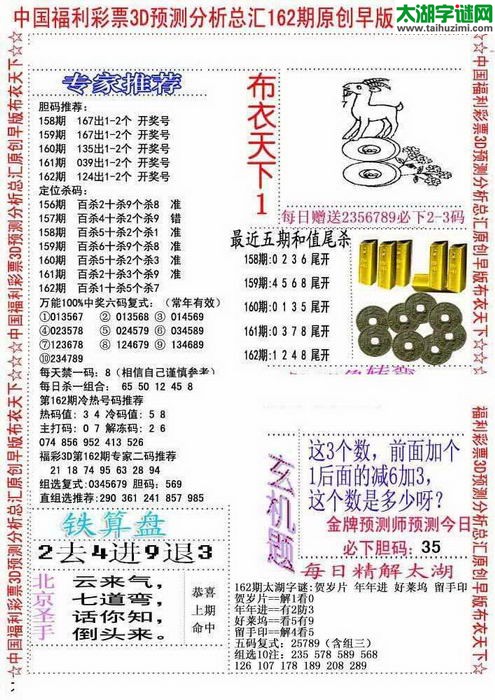 中国福利彩票3D预测分析总汇162期原创早版
太湖字谜网
www.taihuzimi.com
☆中国福利彩票3D预测分析总汇原创早版布衣天下☆
专家推荐
胆码推荐:
158期 167出1-2个 开奖号
159期 167出1-2个 开奖号
160期 135出1-2个 开奖号
161期 039出1-2个 开奖号
162期 124出1-2个 开奖号
定位杀码:
156期 百杀2十杀9个杀8 准
157期 百杀4十杀2个杀9 错
158期 百杀5十杀2个杀1 准
159期 百杀8十杀2个杀6 准
160期 百杀2十杀7个杀8 准
161期 百杀3十杀9个杀7 准
162期 百杀1十杀5个杀7
万能100%中奖六码复式: (常年有效)
①013567 ②013568 ③014569
④023578 ⑤024579 ⑥034589
⑦123678 ⑧124679 ⑨134689
⑩234789
每天禁一码: 8 (相信自己谨慎参考)
每日杀一组合: 65 50 12 45 8
第162期冷热号码推荐
热码值: 3 4 冷码值: 5 8
主打码: 0 7 解冻码: 2 6
074 856 952 413 526
福彩3D第162期专家二码推荐
21 18 74 95 63 28 94
组选复式: 0345679 胆码: 569
直组选推荐: 290 361 241 857 985
铁算盘
2去4进9退3
北京圣手
云来气,
七道弯,
话你知,
倒头来。
恭喜
上期
命中
布衣天下1
每日赠送2356789必下2-3码
最近五期和值尾杀
158期:0 2 3 6 尾开
159期:4 6 8 9 尾开
160期:0 1 3 5 尾开
161期:0 3 7 8 尾开
162期:1 2 4 8 尾开
玄机题
这3个数,前面加个
1后面的减6加3,
这个数是多少呀?
金牌预测师预测今日
必下胆码: 35
每日精解太湖
162期太湖字谜:贺岁片 年年进 好莱坞 留手印
贺岁片==解1看0
年年进==有2防3
好莱坞==看5有9
留手印==解4看5
五码复式: 25789 (含组三)
组选10注: 235 578 589 568
126 107 178 189 208 289
☆中国福利彩票3D预测分析总汇原创早版布衣天下☆